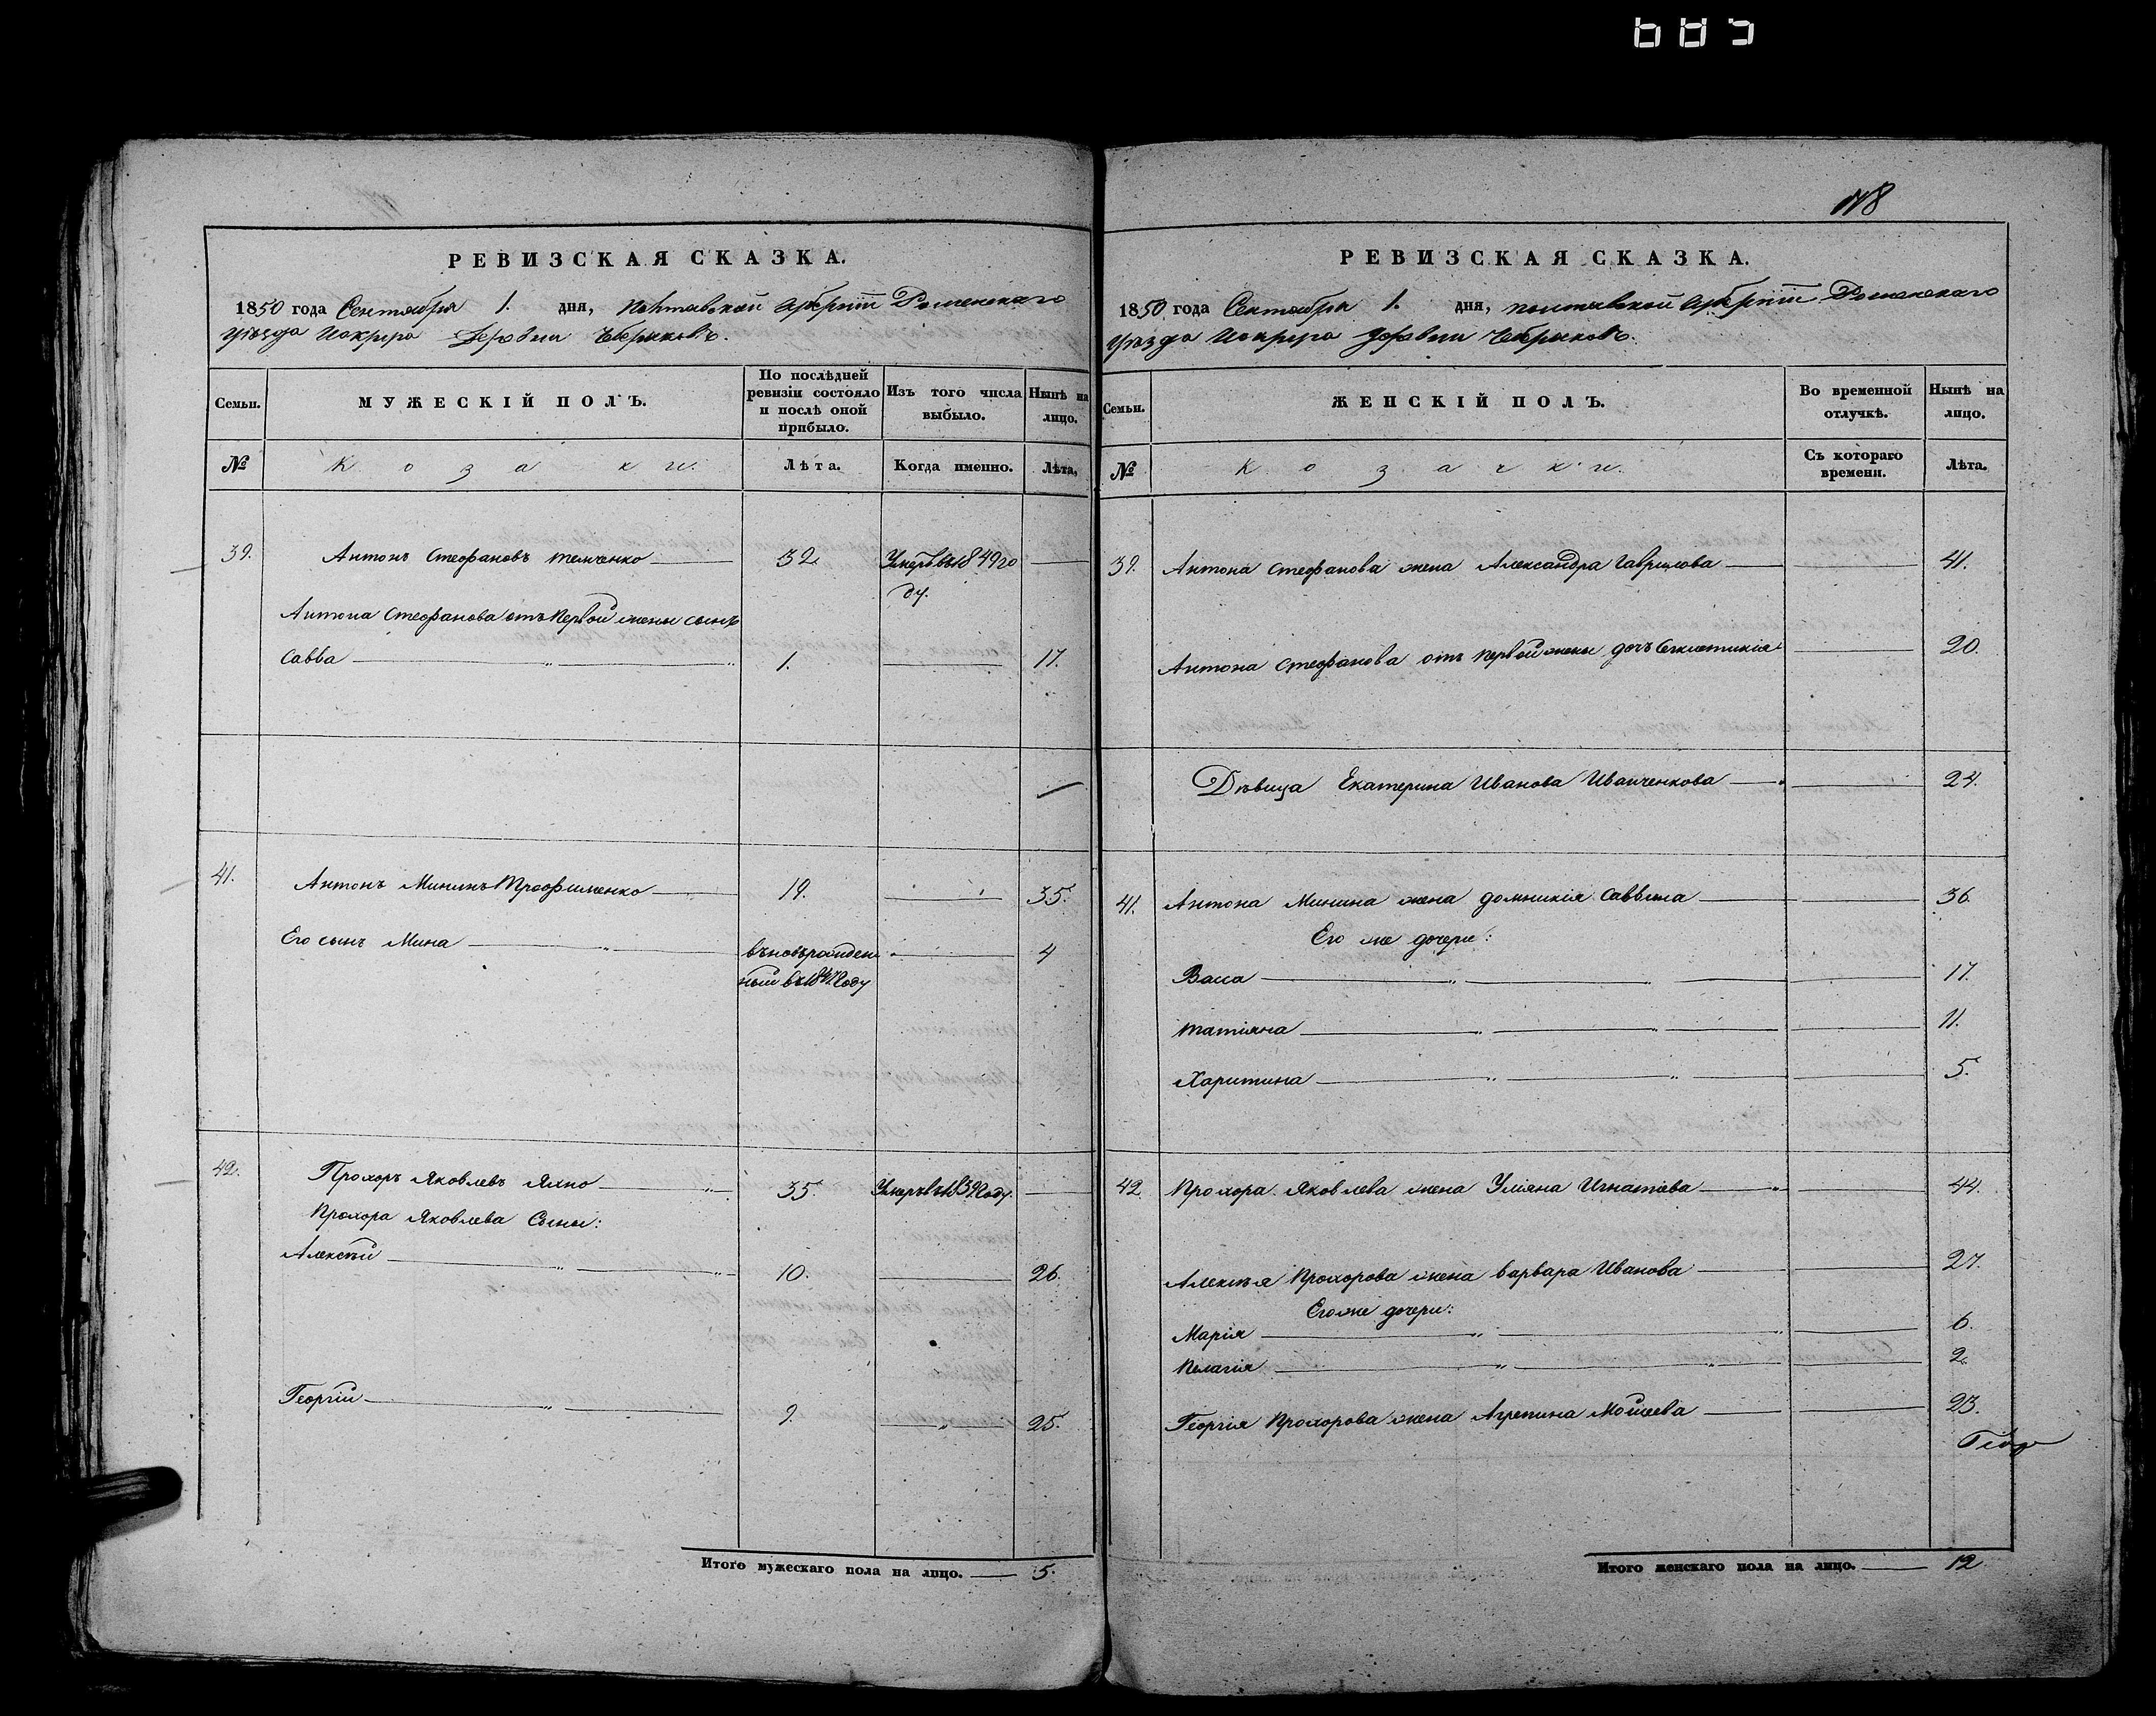 685
118
РЕВИЗСКАЯ СКАЗКА.
1850 года Сентября 1. дня, Полтавской Губерніи Роменскаго
уѣзда
МУЖЕСКІЙ ПОЛЪ.
Семьи.
По послѣдней ревизіи состояло и послѣ оной прибыло.
Изъ того числа выбыло.
Нынѣ на лицо.
№
Козаки.
Лѣта.
Когда именно.
Лѣта.
39. Антонъ Стефановъ Темченко 32. Умеръ въ 1849 го
ду.
Антона Стефанова отъ первой жены сынъ
Савва " " 1. 17.
41. Антонъ Мининъ Трофименко 19. 35.
Его сынъ Мина " въновьрожден 4
ный въ 18 году
42. Прохоръ Яковлевъ Яхно " 35. Умеръ въ 1839 году.
Прохора Яковлева Сыны:
Алексѣй " " 10. 26.
Георгій " 9. " 25.
Итого мужескаго пола на лицо. 5.
РЕВИЗСКАЯ СКАЗКА.
1850 года Сентября 1. дня, полтавской Губерніи Роменскаго
уѣзда
Семьи.
ЖЕНСКІЙ ПОЛЪ.
Во временной отлучкѣ.
Нынѣ на лицо.
№
Козачки.
Съ котораго времени.
Лѣта.
39. Антона Стефанова жена Александра Гаврилова 41.
Антона Стефанова отъ первой жены дочь 20.
Дѣвица Екатерина Иванова Иванченкова 24.
41. Антона Минина жена Домникія Саввина 36
Его же дочери:
Васса " " 17.
Татіяна " " 11.
Харитина " " 5.
42. Прохора Яковлева жена Уліяна Игнатіева " 44.
Алексѣя Прохорова жена Варвара Иванова 27.
Его же дочери:
Марія " " 6.
Пелагія " " 2.
Георгія Прохорова жена Агрепина Моисеева 23.
Итого женскаго пола на лицо. 12